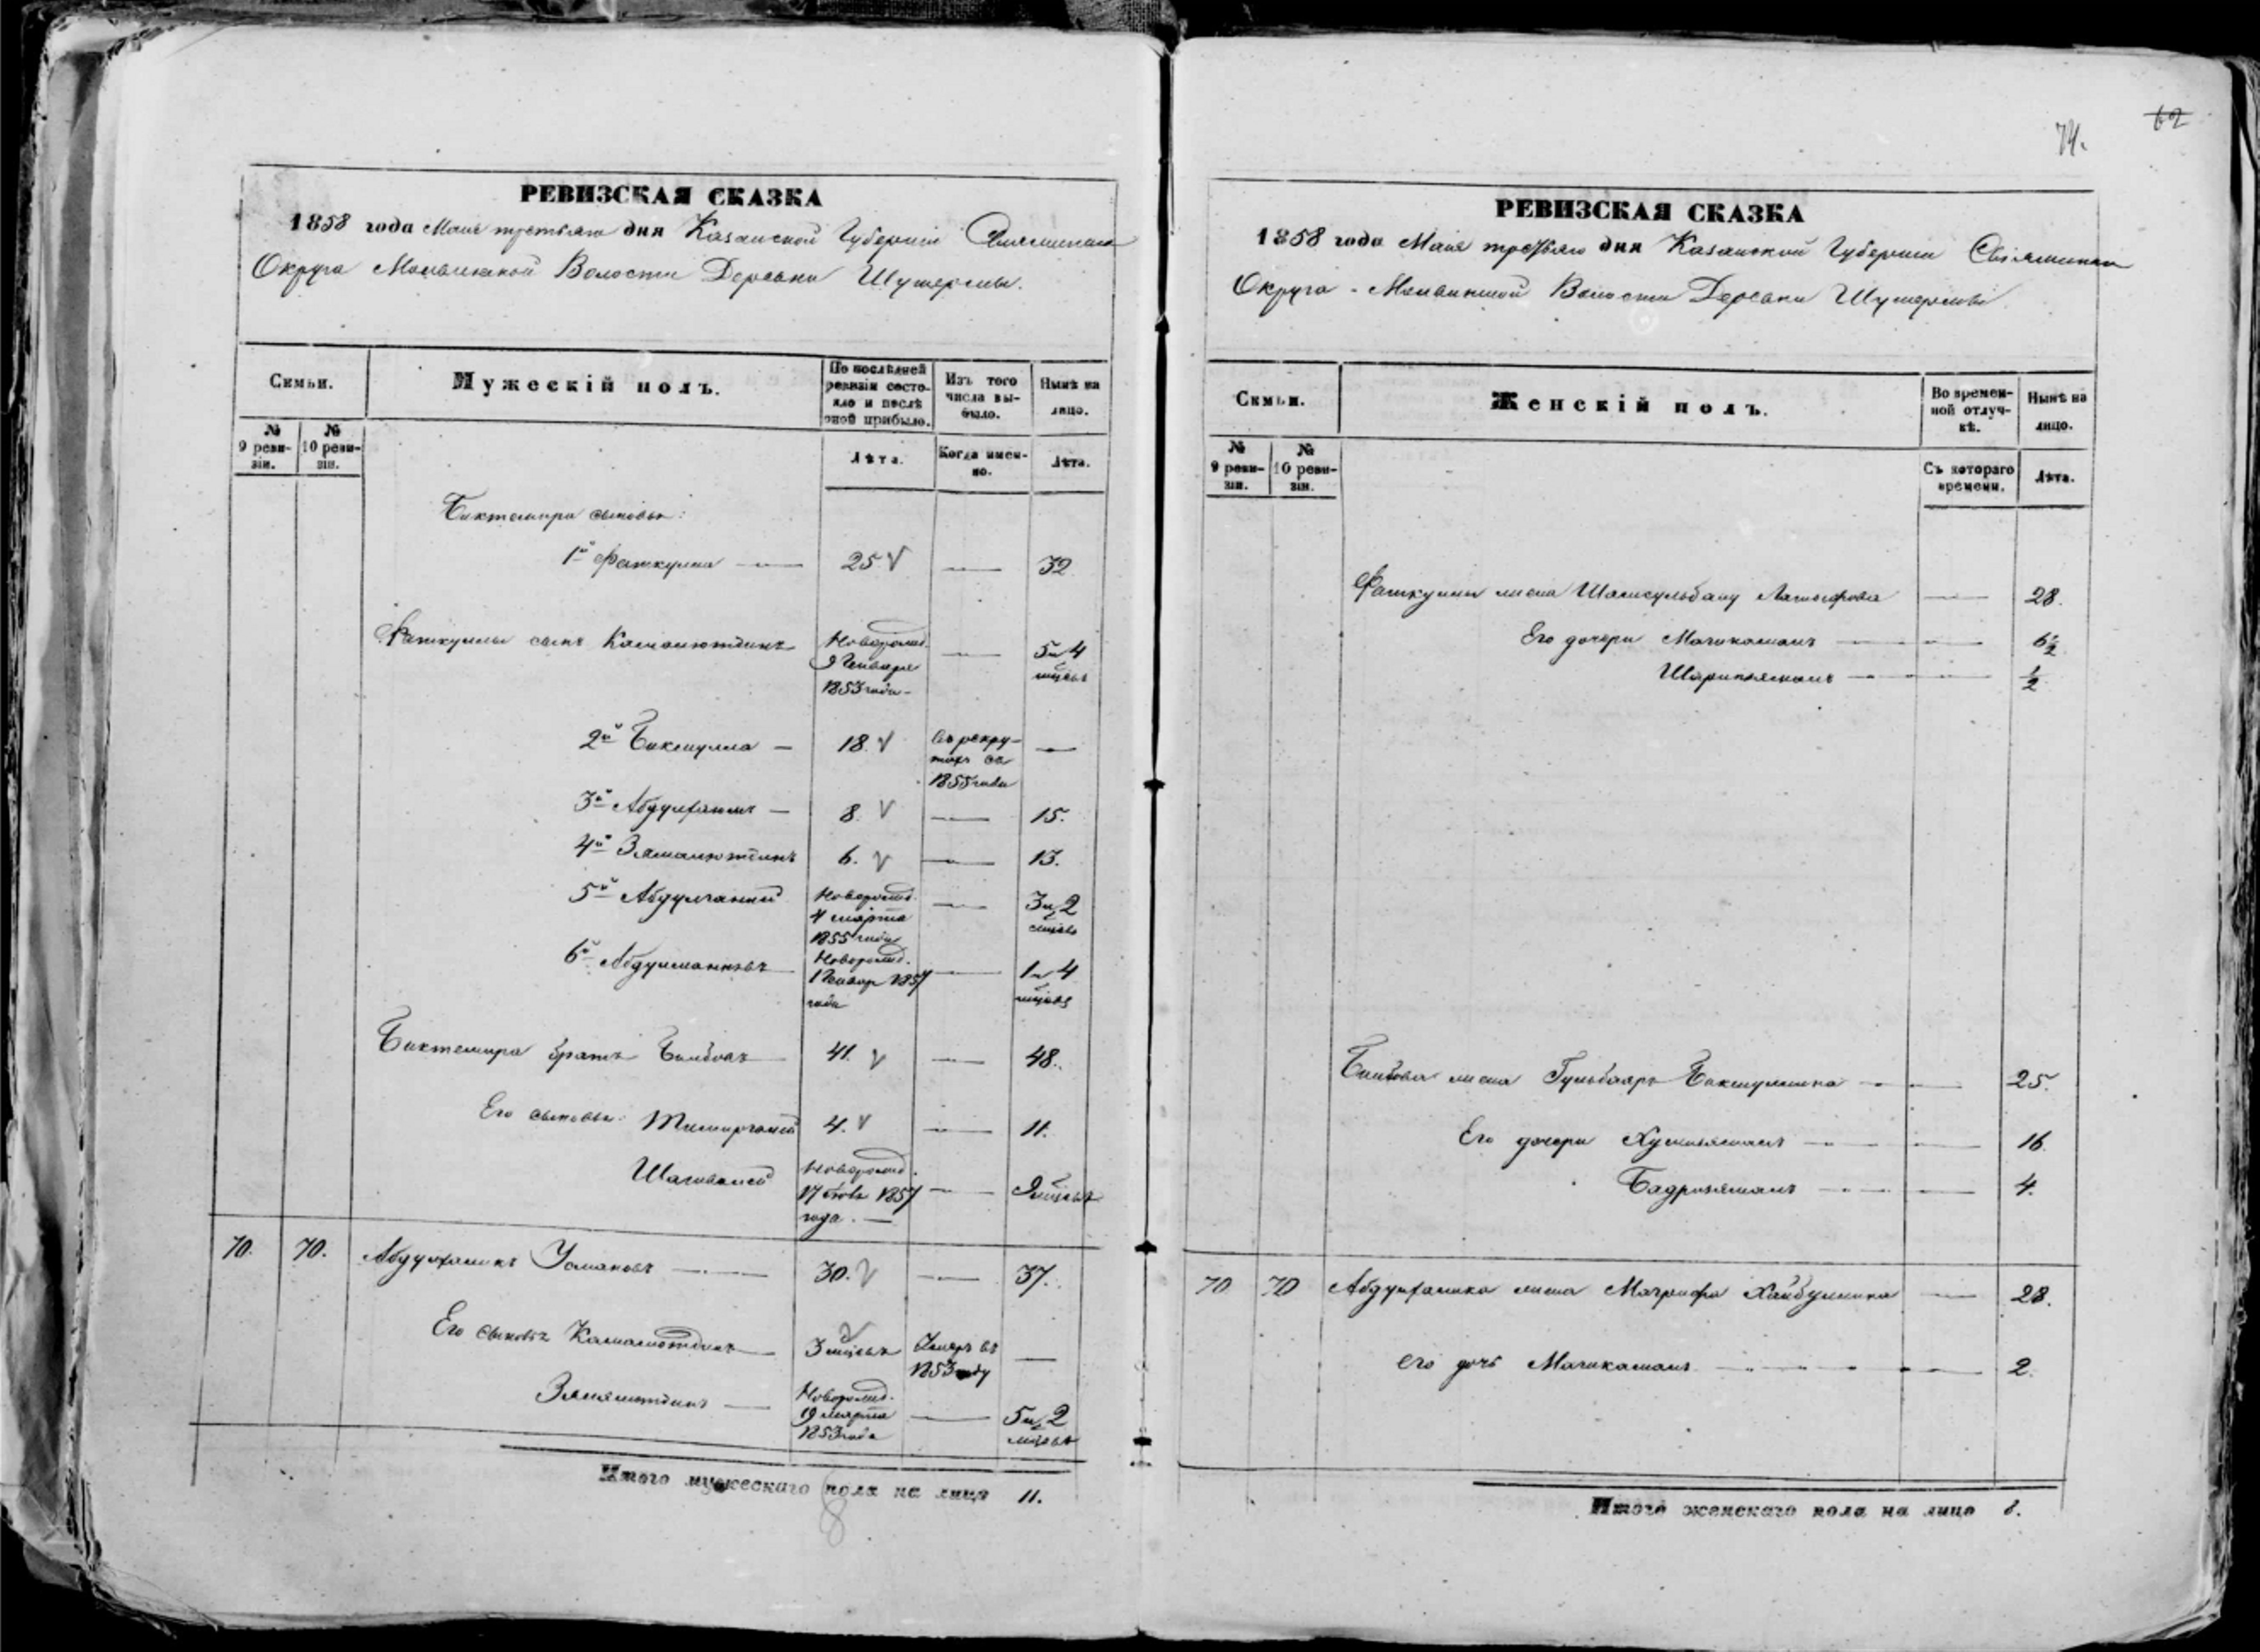 74.
62
РЕВИЗСКАЯ СКАЗКА
1858 года Маія третьяго дня Казанской Губерніи Свіяжскаго
Округа Молвинской Волости Деревни Шушермы.
Семьи.
Мужескій полъ.
По послѣдней ревизіи состояло и послѣ оной прибыло.
Изъ того числа выбыло.
Нынѣ на лицо.
№ 9 ревизіи.
№ 10 ревизіи.
Лѣта.
Когда именно.
Лѣта.
Биктемира сыновья:
1й Фаткулла — 25. — 32
Фаткуллы сынъ Камалютдинъ Новорожд. 9 Генваря 1853 года — 5 и 4 мѣсяц
2й Бикмулла — 18. Въ рекрутахъ съ 1855 года —
3й — 8. — 15.
4й Зямалютдинъ 6. — 13.
5й Абдулганій Новорожд. 4 марта 1855 года — 3 и 2 мѣсяц
6й Новорожд. 1 Генвар 1857 года — 1 и 4 мѣсяц
Биктемира братъ Бикбовъ 41. — 48.
Его сыновья: Тимиргалей 4. — 11.
Шагивалей Новорожд. 17 1857 года. — 9 мѣсяцъ
70. 70. Усмановъ — 30. — 37.
Его сыновья Камалютдинъ — 3 мѣсяцъ Умеръ въ 1853 году —
Новорожд. 19 марта 1853 года — 5 и 2 мѣсяцъ
Итого мужескаго пола на лицо 11.
8
РЕВИЗСКАЯ СКАЗКА
1858 года Маія третьяго дня Казанской Губерніи Свіяжскаго
Округа Молвинской Волости Деревни Шушермы
Семьи.
Женскій полъ.
Во временной отлучкѣ.
Нынѣ на лицо.
№ 9 ревизіи.
№ 10 ревизіи.
Съ котораго времени.
Лѣта.
Фаткуллы жена Шамсульбану Латыфова — 28.
Его дочери Магикамалъ — 6½
— ½
жена Гульбаяръ Бикмуллина — 25.
Его дочери — 16
Бадриямалъ — 4.
70 70 жена Магруфа Хайбуллина — 28.
его дочь Магикамалъ — 2.
Итого женскаго пола на лицо 8.